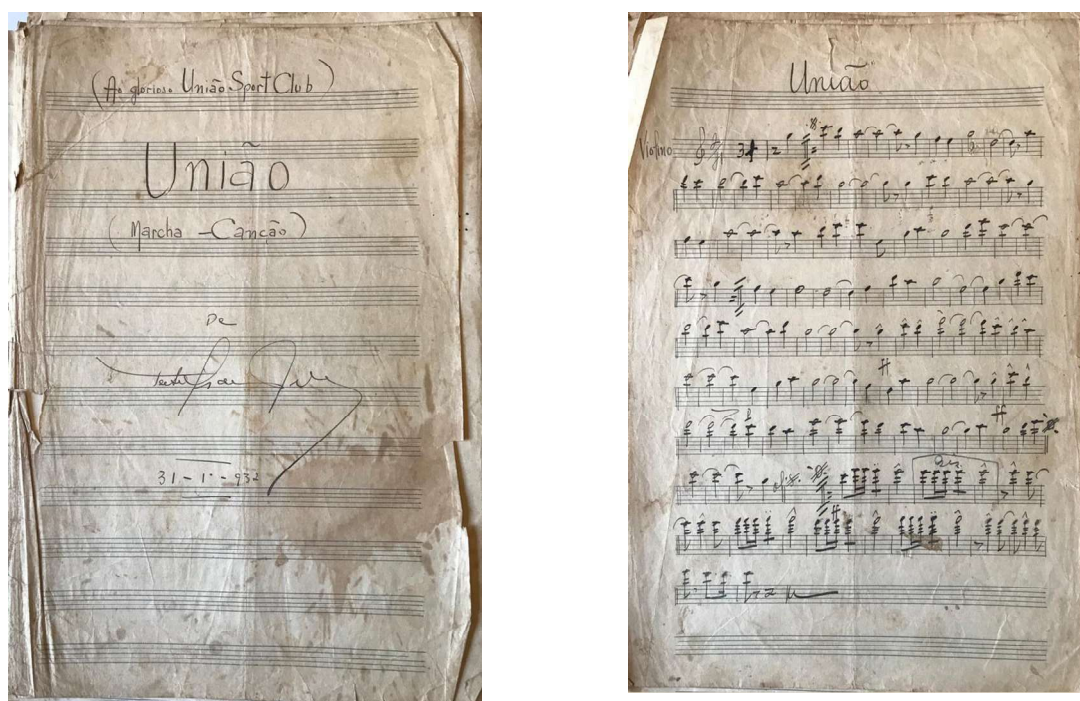 (Ao glorioso União Sport Club)
União
(Marcha - Canção)
De
31 - 1 - 932
União
Violino
ff
ff